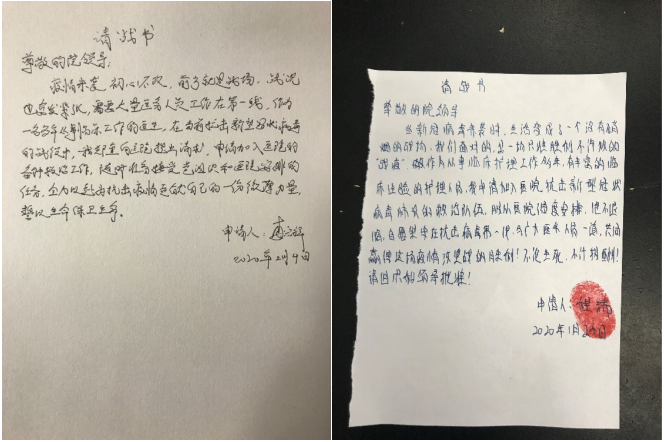 请战书
尊敬的院领导:
疫情来袭,初心不改,前方就是战场,战况
也愈发紧张,需要大量医务人员工作在第一线,作为
一名多年从事临床工作的医生,在当前抗击新型冠状病毒
的战役中,我郑重向医院提出请求,申请加入医院的
各种救治工作,随时准备接受党组织和医院安排的
任务,企为以赴为抗击疫情贡献自己的一份微薄力量,
誓以生命保卫生命。
申请人:
2020年2月4日
请战书
尊敬的院领导
当新冠病毒来袭时,生活变成了一个没有硝
烟的战场,我们面对的,是一场只能胜利不许败的
"战疫"。做作为从事临床护理工作多年,有丰富的临
床经验的护理人员,我申请加入医院抗击新型冠状
病毒肺炎的救治队伍,服从医院调度安排,绝不退
缩,自愿坚守在抗击病毒第一线,与广大医务人员一道,共同
赢得这场疫情攻坚战的胜利!不论生死,不计报酬!
请医院领导批准!
申请人:
2020年1月2 日